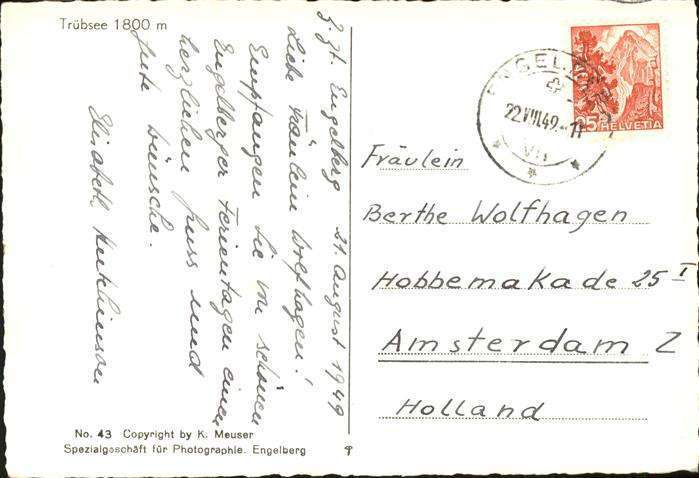 Trübsee 1800 m
z. Zt. Engelberg 21. August 1949
Liebe Fräulein Wolfhagen!
Empfangen Sie von schönen
Engelberger Ferientagen einen
herzlichen Gruss und
gute Wünsche.
Elisabeth
No. 43 Copyright by K. Meuser
Spezialgeschäft für Photographie. Engelberg
ENGELBERG
22.VIII.49.-11
VII
25 HELVETIA
Fräulein
Berthe Wolfhagen
Hobbemakade 25 I
Amsterdam Z
Holland